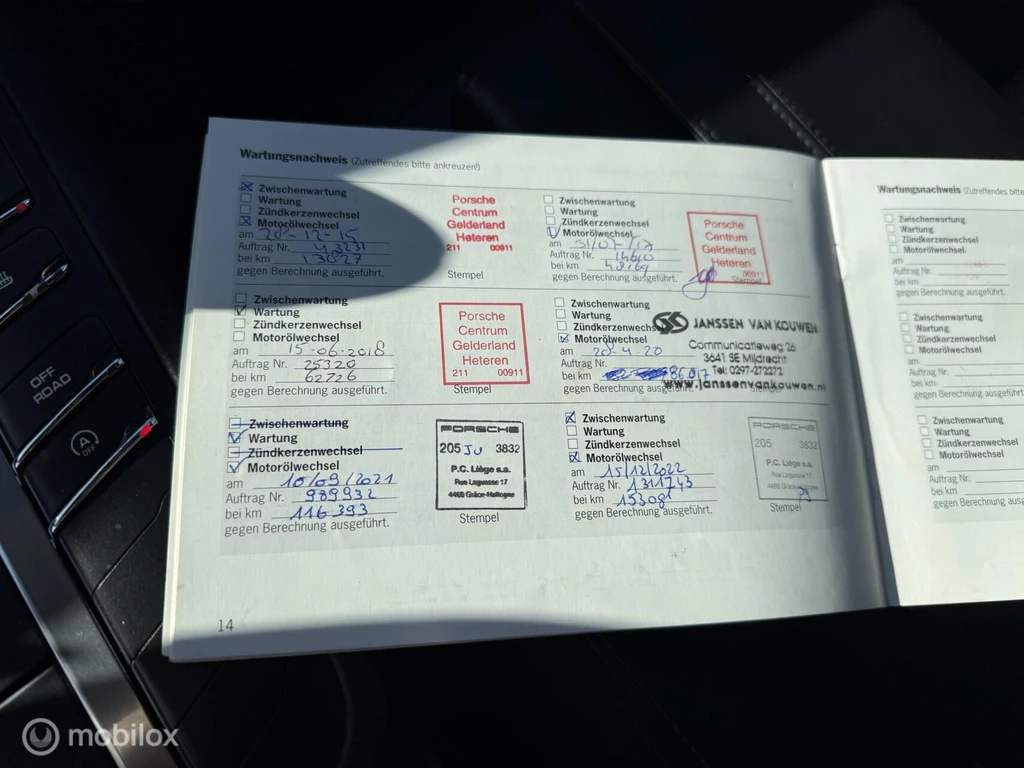 Wartungsnachweis (Zutreffendes bitte ankreuzen!)
Zwischenwartung
Wartung
Zündkerzenwechsel
Motorölwechsel
am 20-12-15
Auftrag Nr. 43231
bei km 13027
gegen Berechnung ausgeführt.
Porsche
Centrum
Gelderland
Heteren
211 00911
Stempel
Zwischenwartung
Wartung
Zündkerzenwechsel
Motorölwechsel
am 31/07/17
Auftrag Nr. 14610
bei km 48169
gegen Berechnung ausgeführt.
Porsche
Centrum
Gelderland
Heteren
00911
Stempel
Zwischenwartung
Wartung
Zündkerzenwechsel
Motorölwechsel
am 15-06-2018
Auftrag Nr. 25320
bei km 62726
gegen Berechnung ausgeführt.
Porsche
Centrum
Gelderland
Heteren
211 00911
Stempel
Zwischenwartung
Wartung
Zündkerzenwechsel
Motorölwechsel
am 20-4-20
Auftrag Nr.
bei km 86017
gegen Berechnung ausgeführt.
JANSSEN VAN KOUWEN
Communicatieweg 26
3641 SE Mijdrecht
Tel: 0297-272272
www.janssenvankouwen.nl
Zwischenwartung
Wartung
Zündkerzenwechsel
Motorölwechsel
am 10/09/2021
Auftrag Nr. 989932
bei km 116 393
gegen Berechnung ausgeführt.
PORSCHE
205 JU 3832
P.C. Liège s.a.
Rue Laguesse 17
4460 Grâce-Hollogne
Stempel
Zwischenwartung
Wartung
Zündkerzenwechsel
Motorölwechsel
am 15/12/2022
Auftrag Nr. 1311743
bei km 153081
gegen Berechnung ausgeführt.
PORSCHE
205 3832
P.C. Liège s.a.
Rue Laguesse 17
4460 Grâce-Hollogne
Stempel
14
Wartungsnachweis (Zutreffendes bitte
Zwischenwartung
Wartung
Zündkerzenwechsel
Motorölwechsel
am
Auftrag Nr.
bei km
gegen Berechnung ausgeführt.
Zwischenwartung
Wartung
Zündkerzenwechsel
Motorölwechsel
am
Auftrag Nr.
bei km
gegen Berechnung ausgeführt.
Zwischenwartung
Wartung
Zündkerzenwechsel
Motorölwechsel
am
Auftrag Nr.
bei km
gegen Berechnung
OFF
ROAD
A
OFF
mobilox